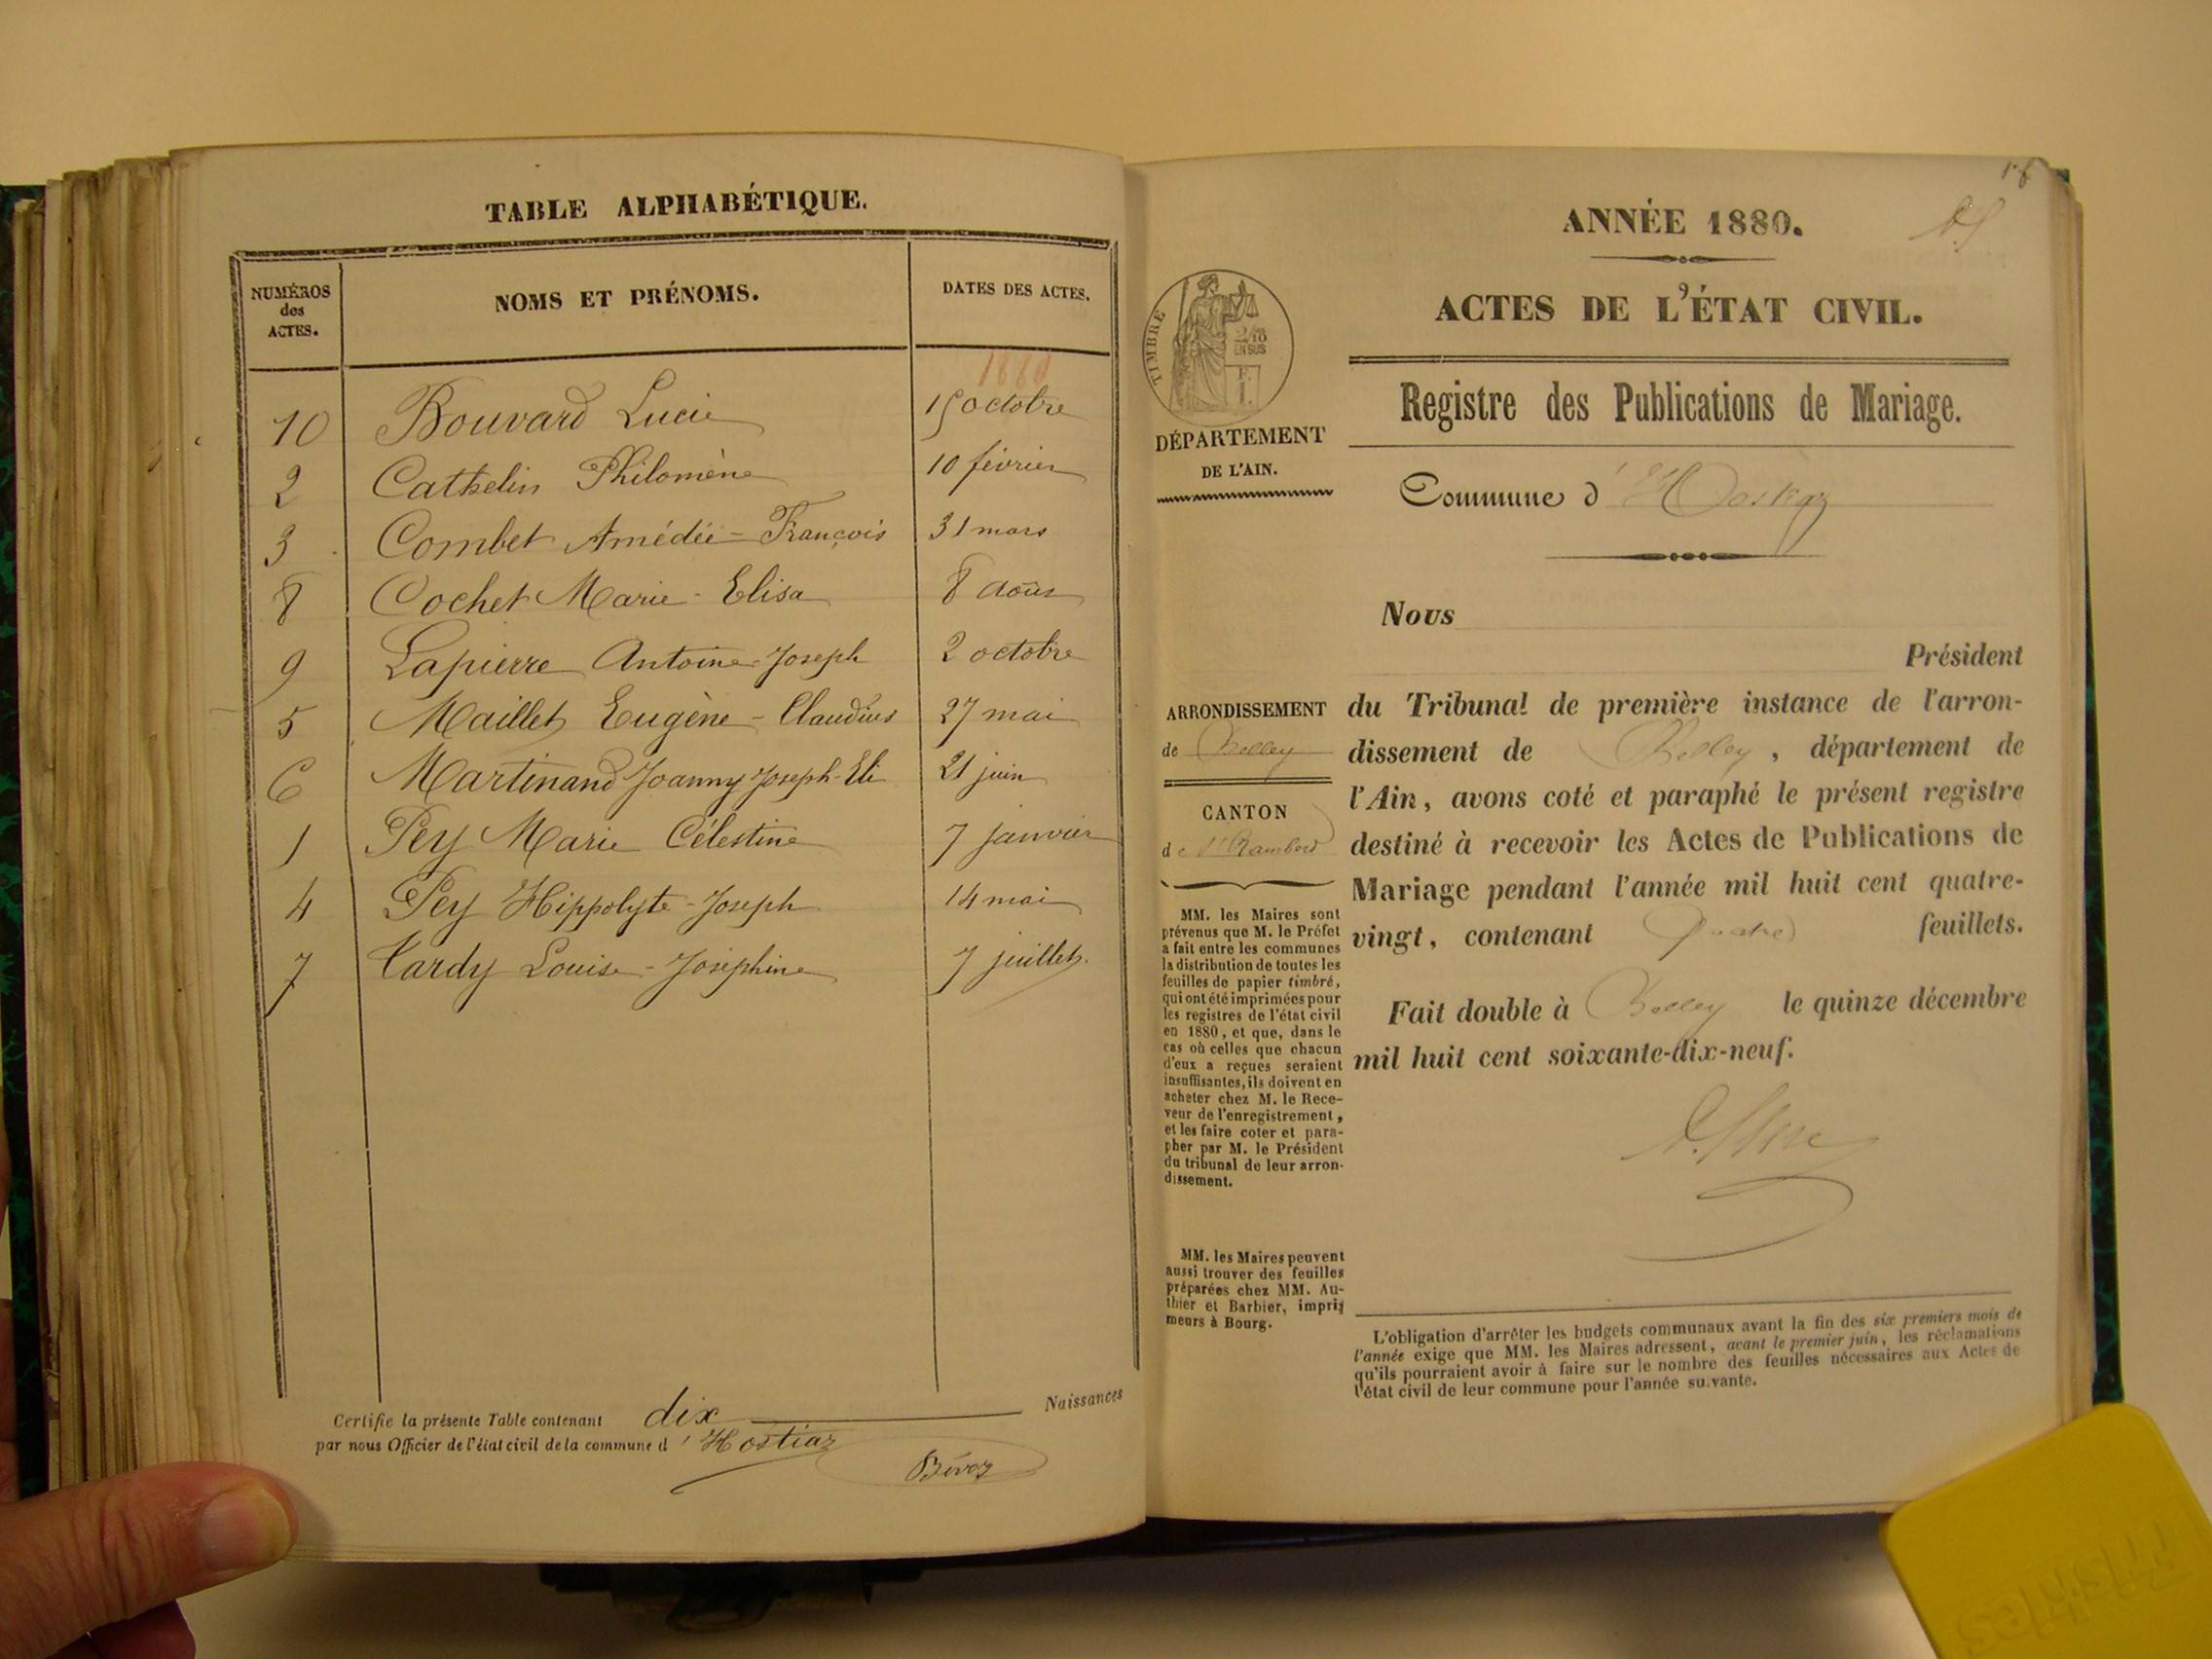 TABLE ALPHABÉTIQUE.
NUMÉROS des ACTES. NOMS ET PRÉNOMS. DATES DES ACTES.
1880
10 Bouvard Lucie 15 octobre
2 Cathelin Philomène 10 février
3 Combet Amédée-François 31 mars
8 Cochet Marie-Elisa 8 août
9 Lapierre Antoine-Joseph 2 octobre
5 Maillet Eugène-Claudius 27 mai
6 Martinand Joanny Joseph-Eli 21 juin
1 Pey Marie Célestine 7 janvier
4 Pey Hippolyte-Joseph 14 mai
7 Tardy Louise-Joséphine 7 juillet.
Certifie la présente Table contenant dix Naissances
par nous Officier de l'état civil de la commune d'Hostiaz
ANNÉE 1880.
ACTES DE L'ÉTAT CIVIL.
TIMBRE
2/10
EN SUS
Registre des Publications de Mariage.
DÉPARTEMENT
DE L'AIN.
Commune d'Hostiaz
Nous
Président
du Tribunal de première instance de l'arron-
dissement de Belley, département de
l'Ain, avons coté et paraphé le présent registre
destiné à recevoir les Actes de Publications de
Mariage pendant l'année mil huit cent quatre-
vingt, contenant quatre feuillets.
Fait double à Belley le quinze décembre
mil huit cent soixante-dix-neuf.
ARRONDISSEMENT
de Belley
CANTON
de St Rambert
MM. les Maires sont
prévenus que M. le Préfet
a fait entre les communes
la distribution de toutes les
feuilles de papier timbré,
qui ont été imprimées pour
les registres de l'état civil
en 1880, et que, dans le
cas où celles que chacun
d'eux a reçues seraient
insuffisantes, ils doivent en
acheter chez M. le Rece-
veur de l'enregistrement,
et les faire coter et para-
pher par M. le Président
du tribunal de leur arron-
dissement.
MM. les Maires peuvent
aussi trouver des feuilles
préparées chez MM. Au-
thier et Barbier, impri-
meurs à Bourg.
L'obligation d'arrêter les budgets communaux avant la fin des six premiers mois de
l'année exige que MM. les Maires adressent, avant le premier juin, les réclamations
qu'ils pourraient avoir à faire sur le nombre des feuilles nécessaires aux Actes de
l'état civil de leur commune pour l'année suivante.